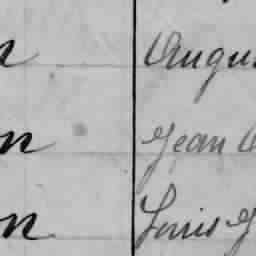 n Augus
on Jean
on Louis